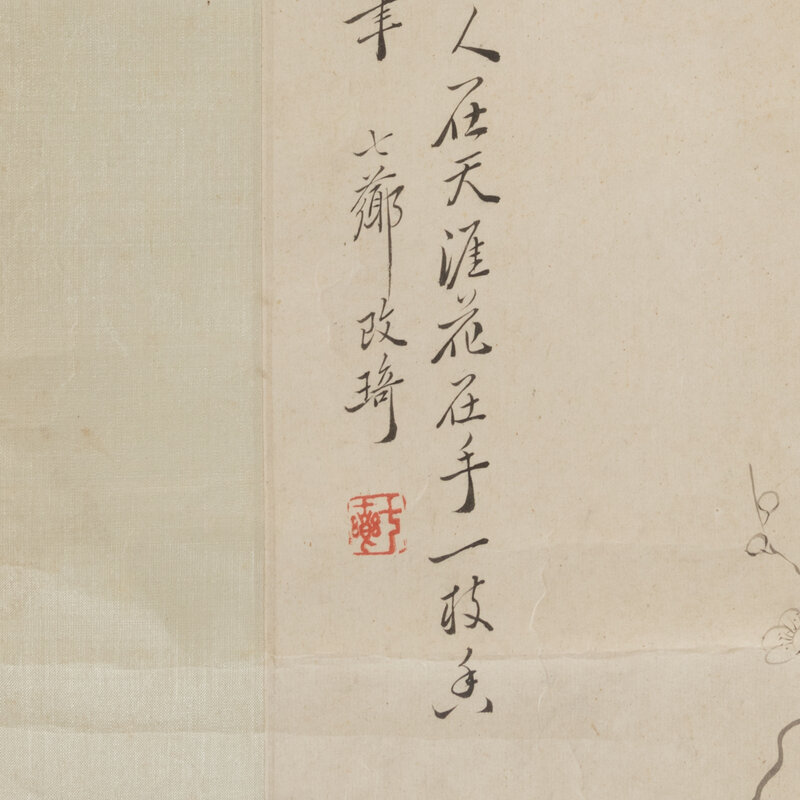 人在天涯花在手一枝香
七薌改琦
七薌